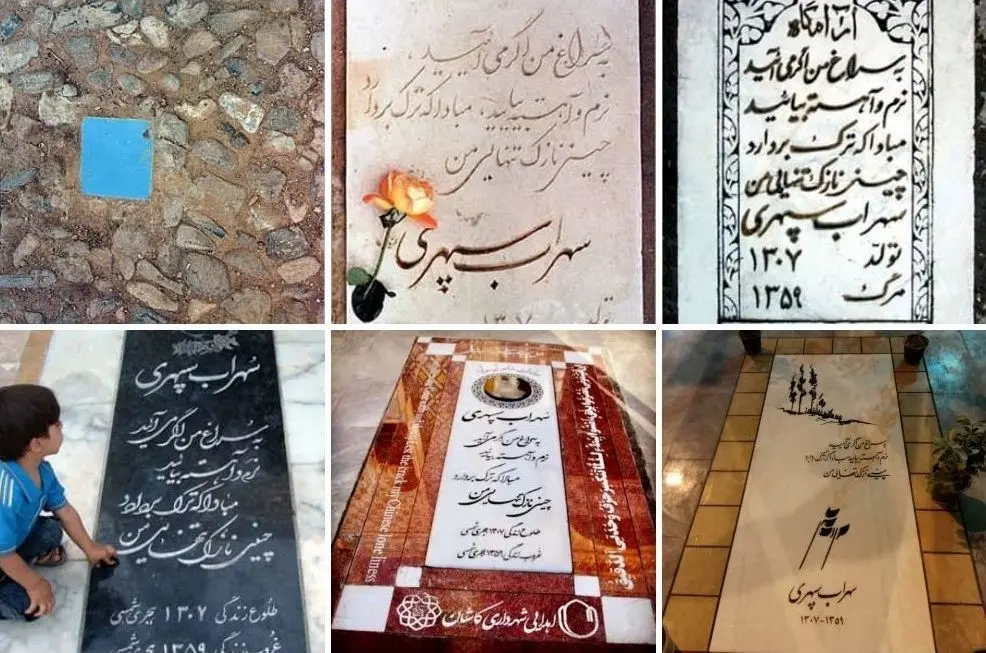 به سراغ من اگر می آیید،
نرم و آهسته بیایید، مبادا که ترک بردارد
چینی نازک تنهایی من
سهراب سپهری
تولد ۱۳۰۷
آرامگاه
به سراغ من اگر می آئید
نرم و آهسته بیائید
مبادا که ترک بردارد
چینی نازک تنهایی من
سهراب سپهری
تولد ۱۳۰۷
مرگ ۱۳۵۹
سهراب سپهری
به سراغ من اگر می آئد
نرم و آهسته بیایید
مبادا که ترک بردارد
چینی نازک تنهایی من
طلوع زندگی ۱۳۰۷ هجری شمسی
غروب زندگی ۱۳۵۹ هجری شمسی
سهراب سپهری
به سراغ من اگر می آیید
نرم و آهسته بیایید
مبادا که ترک بردارد
چینی نازک تنهایی من
طلوع زندگی ۱۳۰۷ هجری شمسی
غروب زندگی ۱۳۵۹ هجری شمسی
crack my Chinese loneliness
اهدایی شهرداری کاشان
به سراغ من اگر می آیید
نرم و آهسته بیایید مبادا که ترک بردارد
چینی نازک تنهایی من
سهراب سپهری
۱۳۰۷-۱۳۵۹